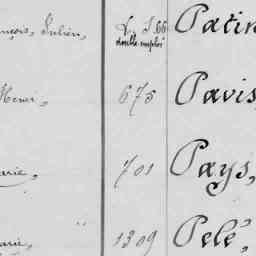 ançois, Julien, V. I. 66 Patin
double emploi
Henri, 675 Pavis,
arie, 701 Pays,
arie, 1309 Pelé,